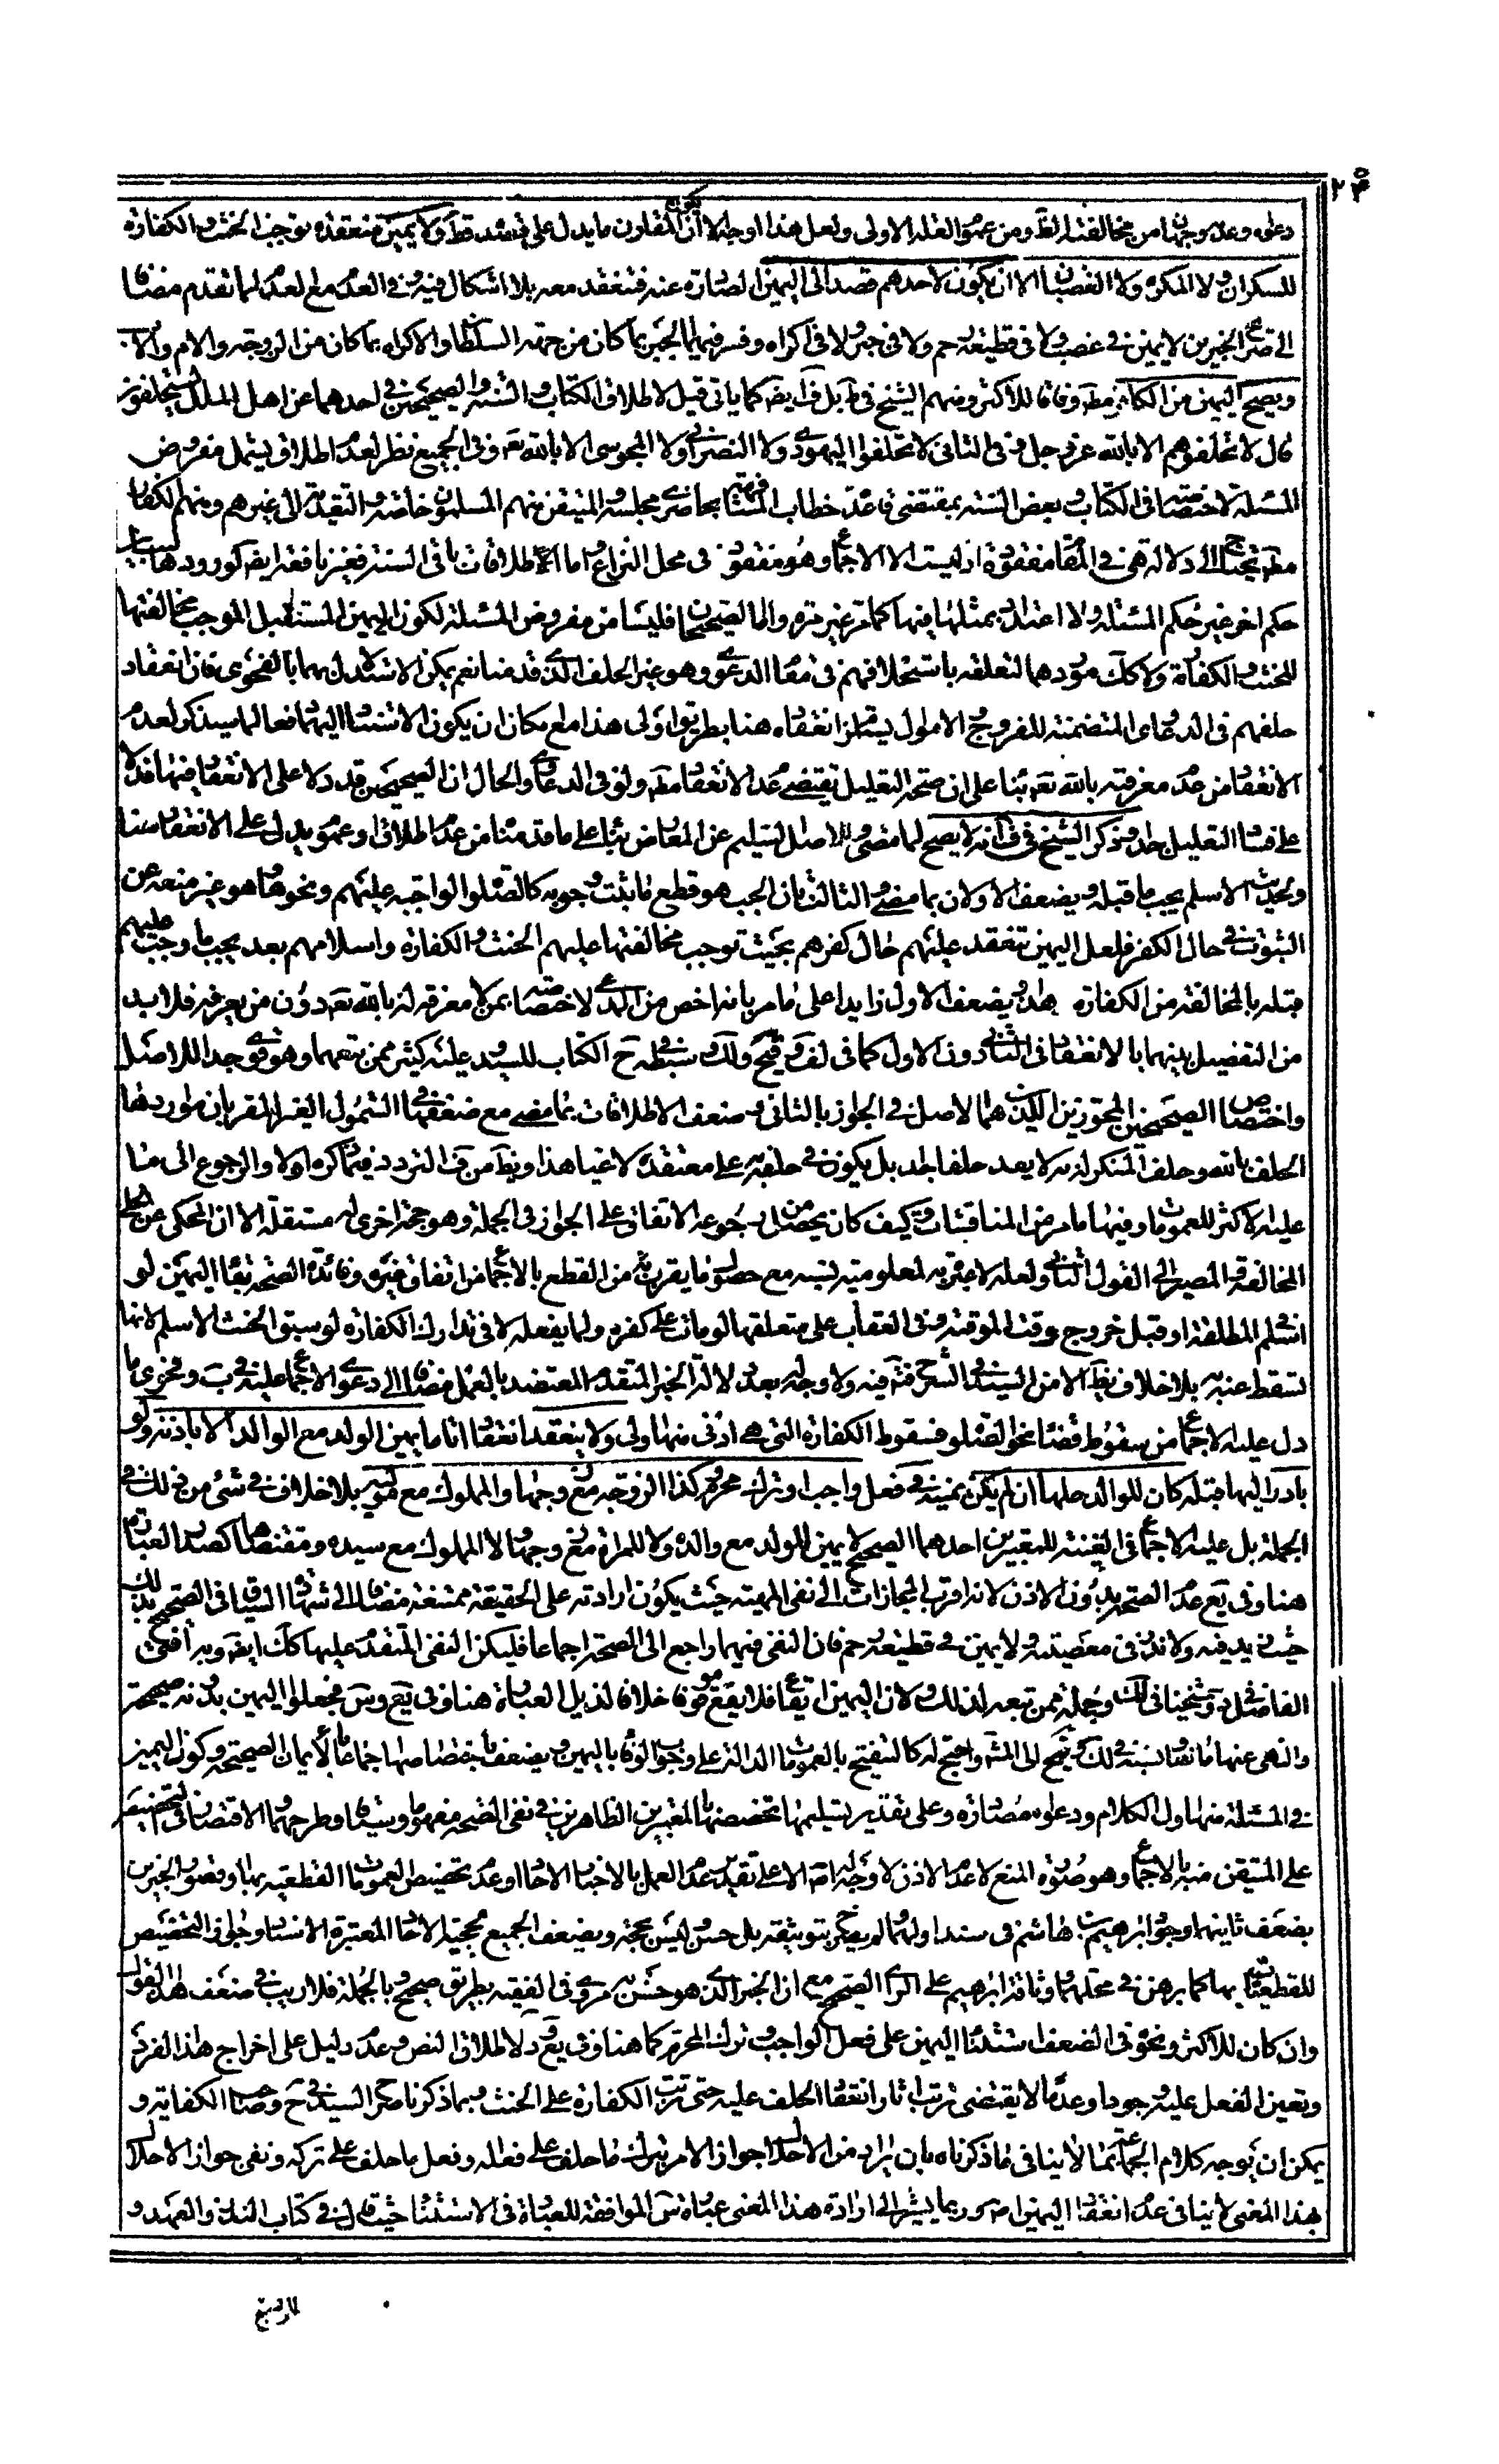 دعوى وعلى وجهان من مخالفته الظ ومن عموم العلة الاولى ولعل هذا اوجه الا ان يكون المقارن ما يدل على قصد قط ولا يمين منعقدة توجب الحنث والكفارة
للسكران ولا المكره ولا الغضبان الا ان يكون لاحدهم قصد الى اليمين الصادرة عنه فتنعقد معه بلا اشكال فيه وفي العدم مع لعدم لما تقدم مضافا
الى صريح الخبرين لا يمين في غضب ولا في قطيعة رحم ولا في جبر ولا في اكراه وفسر فيهما الجبر بما كان من جهة السلطان والاكراه بما كان من الزوجة والام والاب
ويصح اليمين من الكافر مطه وفاقا للاكثر ومنهم الشيخ في ط بل ف ايضا كما ياتي قيل لاطلاق الكتاب والسنة والصحيحين في احدهما عن اهل الملل يستحلفون
قال لا تحلفوهم الا بالله عز وجل وفي الثاني لا تحلفوا اليهودي ولا النصراني ولا المجوسي الا بالله تعه وفي الجميع نظر لعدم اطلاق يشمل مفروض
المسئلة لاختصاص الكتاب وبعض السنة بمقتضى قاعدة خطاب المشافهة بحاضري مجلسه المتيقن منهم المسلمون خاصة والتعدية الى غيرهم ومنهم الكفار
مطه يحتاج الى دلالة هي في المقام مفقودة اذ ليست الا الاجماع وهو مفقود في محل النزاع واما الاطلاقات باقي السنة فغير نافعة ايضه لورودها لبيان
حكم اخر غير حكم المسئلة ولا اعتداد بمثلها فيها كما مر غير مرة واما الصحيحان فليسا من مفروض المسئلة لكون اليمين المستقبل الموجب مخالفتها
للحنث والكفارة ولا كك موردهما لتعلقه باستحلافهم في مقام الدعوى وهو غير الحلف الذي قدمنا نعم يمكن الاستدلال بهما بالفحوى فان انعقاد
حلفهم في الدعاوي المتضمنة للفروج والاموال يستلزم انعقاده هنا بطريق اولى هذا مع مكان ان يكون الاستناد اليهما دفعا لما سيذكر لعدم
الانعقاد من عدم معرفته بالله تعه بناء على ان صحة التعليل تقتضي عدم الانعقاد مطه ولو في الدعاوي والحال ان الصحيحين قد دلا على الانعقاد فيها فدلا
على فساد التعليل جدا وذكر الشيخ في ف انه لا يصح لما مضى وللاصل السليم عن المعارض بناء على ما قدمنا من عدم اطلاق او عموم يدل على الانعقاد هنا
ولحديث الاسلام يجب ما قبله ويضعف الاولان بما مضى والثالث بان الجب هو قطع ما يثبت وجوبه كالصلوة الواجبة عليهم ونحوها وهو غير منعه عن
الثبوت في حال الكفر فلعل اليمين تنعقد عليهم حال كفرهم بحيث توجب مخالفتها عليهم الحنث والكفارة واسلامهم بعد يجب ما وجب عليهم
قبله بالمخالفة من الكفارة هذا ويضعف الاول زايدا على ما مر بانه اخص من المدعى لاختصاصه بمن لا معرفة له بالله تعه دون من يعرفه فلا بد
من التفصيل بينهما بالانعقاد في الثاني دون الاول كما في لف و قيح ولك وشرح الكتاب للسيد وعليه كثير ممن تبعهما وهو قوي جدا للاصل
واختصاص الصحيحين المجوزين اللذين هما الاصل في الجواز بالثاني وضعف الاطلاقات بما مضى مع ضعفها في الشمول الغير المقر بان مواردها
الحلف بالله وحلف المنكر له به لا يعد حلفا جدا بل يكون في حلفه به على معتقده لاغيا هذا ويظ من ف التردد فيما ذكره اولا والرجوع الى ما
عليه الاكثر للعمومات وفيها ما مر من المناقشات وكيف كان يحصل من رجوعه الاتفاق على الجواز في الجملة وهو حجة اخرى له مستقلة الا ان المحكي عن الحلي
المخالفة والمصير الى القول الثاني ولعله لا عبرة به لمعلومية نسبه مع حصول ما يقرب من القطع بالاجماع من اتفاق غيره وفائدة الصحة بقاء اليمين لو
اسلم في المطلقة او قبل خروج وقت الموقتة وفي العقاب على متعلقها لو مات على كفره ولما يفعله لا في تدارك الكفارة لو سبق الحنث الاسلام لانها
تسقط عنه به بلا خلاف يظ الا من السيد في الشرح فتامل فيه ولا وجه له بعد دلالة الخبر المتقدم المعتضد بالعمل مضافا الى دعوى الاجماع عليه في ب وفحوى ما
دل عليه الاجماع من سقوط قضاء نحو الصلوة فسقوط الكفارة التي هي ادنى منها اولى ولا ينعقد انعقادا تاما يمين الولد مع الوالد الا باذنه ولو
بادر اليها قبله كان للوالد حلها ان لم يكن يمينه في فعل واجب او ترك محرم وكذا الزوجة مع زوجها والمملوك مع مولاه بلا خلاف في شئ من ذلك في
الجملة بل عليه الاجماع في الغنية للمعتبرين احدهما الصحيح لا يمين للولد مع والده ولا للمراة مع زوجها ولا المملوك مع سيده ومقتضاهما كصدر العبارة
هنا وفي يع عدم الصحة بدون الاذن لانه اقرب المجازات الى نفي المهية حيث يكون ارادته على الحقيقة ممتنعة مضافا الى شهادة السياق في الصحيح بذلك
حيث زيد فيه ولا نذر في معصية ولا يمين في قطيعة رحم فان النفي فيهما راجع الى الصحة اجماعا فليكن النفي المتقدم عليهما كك ايضه وبه افتى
الفاضل في د و شيخنا في لك وجملة ممن تبعه لذلك ولان اليمين ايقاع فلا يقع موقوفا خلافا لذيل العبارة هنا وفي يع و س فجعلوا اليمين بدونه صحيحة
والنهي عنها مانعا ونسبه في لك و قيح الى المش واحتج له كالتنقيح بالعمومات الدالة على وجوب الوفاء باليمين ويضعف باختصاصها اجماعا بالايمان الصحيحة وكون اليمين
في المسئلة منها اول الكلام ودعواه مصادرة وعلى تقدير تسليمها تخصصها بالمعتبرين الظاهرين في نفي الصحة مفهوما وسياقا وطرحهما والاقتصار في التخصيص
على المتيقن منه بالاجماع وهو صورة المنع لا عدم الاذن لا وجه له امه الا على تقدير عدم العمل بالاخبار الاحاد او عدم تخصيص العمومات القطعية بها او قصور الخبرين
بضعف ثانيهما وجود ابرهيم بن هاشم في سند اولهما ولم يصرح بتوثيقه بل حسن وليس بحجة ويضعف الجميع بحجية الاحاد المعتبرة الاسناد وجواز التخصيص
للقطعيات بها كما برهن في محلهما ووثاقة ابرهيم على الراي الصحيح مع ان الخبر الذي هو حسن به مروي في الفقيه بطريق صحيح وبالجملة فلا ريب في ضعف هذا القول
وان كان للاكثر ونحوه في الضعف استثناء اليمين على فعل الواجب وترك المحرم كما هنا وفي يع و د لاطلاق النص وعدم دليل على اخراج هذا الفرد
وتعين الفعل عليه وجودا وعدما لا يقتضي ترتب اثار انعقاد الحلف عليه حتى ترتب الكفارة على الحنث وبما ذكرنا صرح السيد في ح وصاحب الكفاية و
يمكن ان يوجه كلام الجماعة بما لا ينافي ما ذكرناه بان يراد من الاحلال جواز الامر بترك ما حلف على فعاله وفعل ما حلف على تركه ونفي جواز الاحلال
بهذا المعنى لا ينافي عدم انعقاد اليمين امه وربما يشير الى ارادة هذا المعنى عبارة س الموافقة للعبارة في الاستثناء حيث قال في كتاب النذر والعهد و